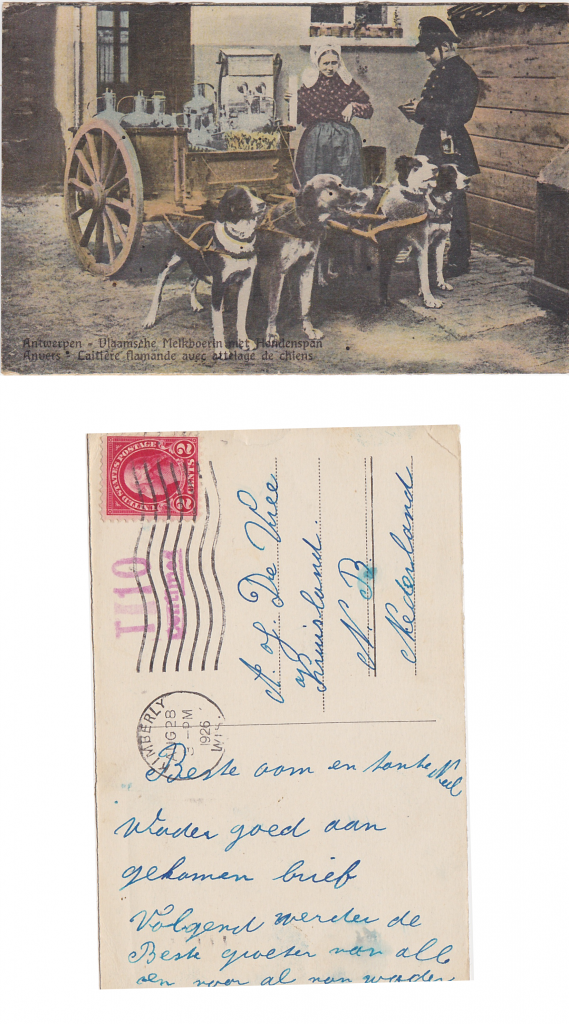 Antwerpen - Vlaamsche Melkboerin met Hondenspan
Anvers - Laitière flamande avec attelage de chiens
UNITED STATES POSTAGE
2 CENTS 2
T 10
centimes
KIMBERLY
AUG 28
PM
1926
WIS.
A. J. De Vree
Kruisland
N. B.
Nederland
Beste oom en tante Neel
Wader goed aan
gekomen brief
Volgend werder de
Beste groeter van alle
en voor al van wader